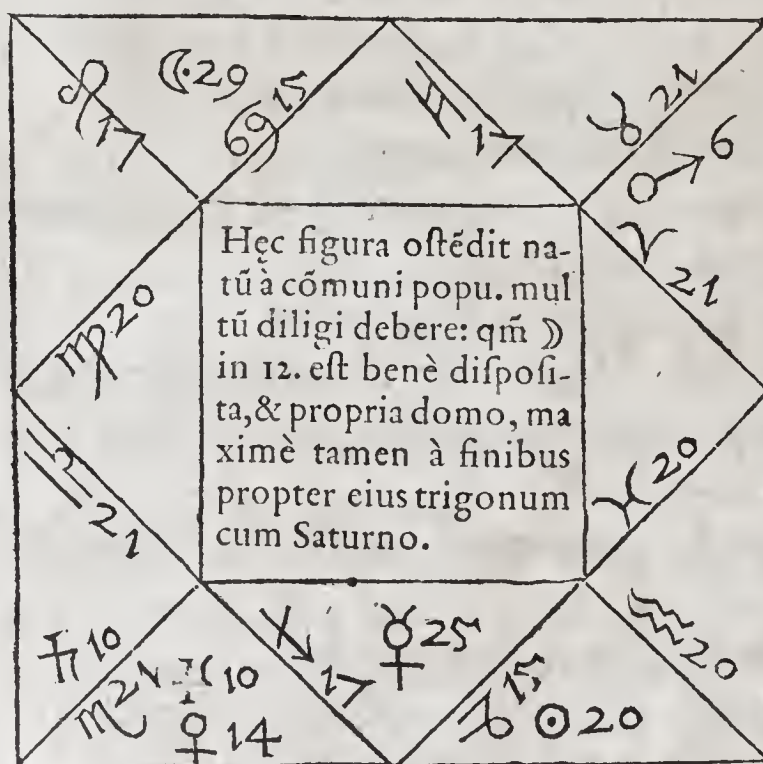 ☾29
♌17
♋15
♊17
♉21
♂6
♈21
Hęc figura oſtẽdit na-
tũ à cõmuni popu. mul
tũ diligi debere: qm̃ ☽
in 12. eſt benè diſpoſi-
ta, & propria domo, ma
ximè tamen à finibus
propter eius trigonum
cum Saturno.
♍20
♓20
♎21
♄10
♏21
10
♀14
♐17
☿25
♑15
☉20
♒20